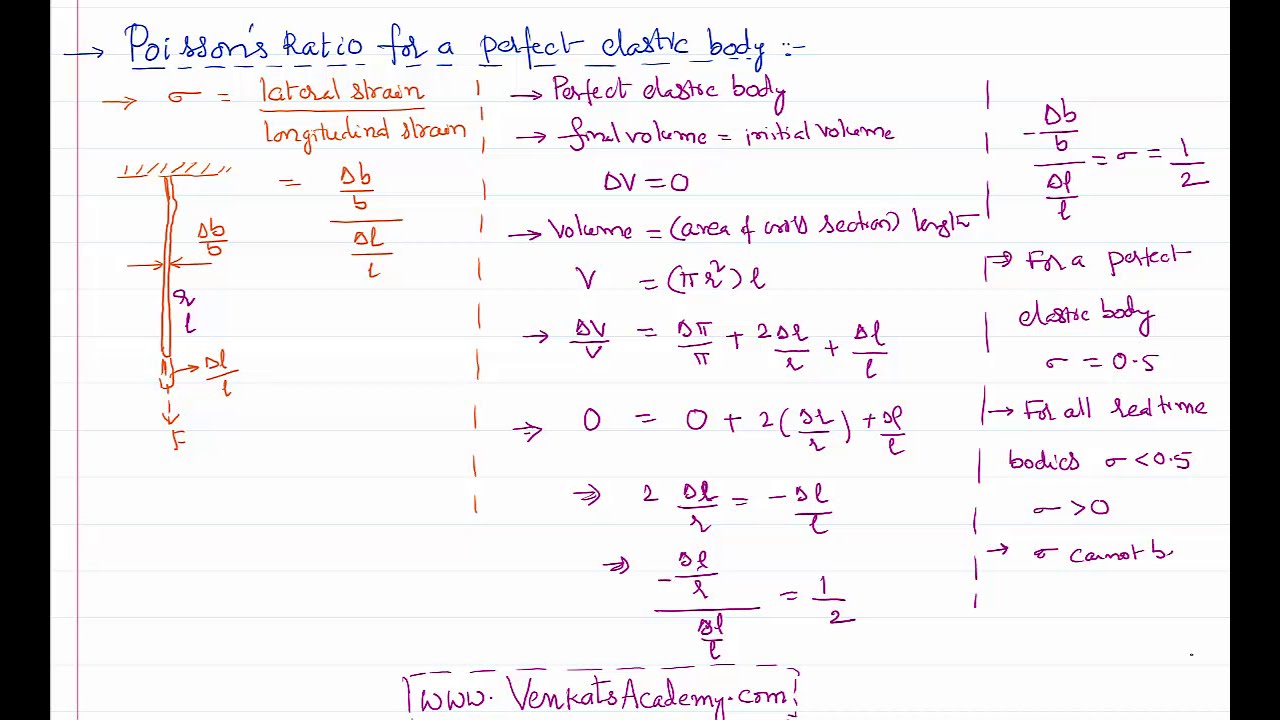 → Poisson's Ratio for a perfect elastic body :-
→ σ = lateral strain / longitudinal strain
= Δb/b / Δl/l
Δb/b
r
l
Δl/l
F
→ Perfect elastic body
→ final volume = initial volume
ΔV = 0
→ Volume = (area of cross section) length
V = (πr²) l
→ ΔV/V = Δπ/π + 2Δr/r + Δl/l
⇒ 0 = 0 + 2(Δr/r) + Δl/l
⇒ 2 Δr/r = -Δl/l
⇒ -Δr/r / Δl/l = 1/2
-Δb/b / Δl/l = σ = 1/2
⇒ For a perfect
elastic body
σ = 0.5
→ For all realtime
bodies σ < 0.5
σ > 0
→ σ cannot b
www.VenkatsAcademy.com